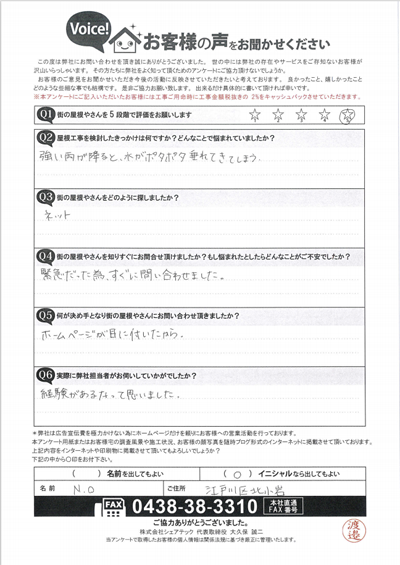 Voice!
お客様の声をお聞かせください
この度は弊社にお問い合わせを頂き誠にありがとうございました。世の中には弊社の存在やサービスをご存知ないお客様が
沢山いらっしゃいます。その方たちに弊社をよく知って頂くためのアンケートにご協力頂けないでしょうか。
お客様のご意見をお聞かせいただき今後の活動に反映させていただきたいと考えております。良かったこと、嬉しかったこと
どのような些細な事でも結構です。是非ご協力お願い致します。出来るだけ具体的に書いて頂ければ幸いです。
※本アンケートにご記入いただいたお客様には工事ご用命時に工事金額税抜きの2%をキャッシュバックさせていただきます。
Q1 街の屋根やさんを5段階で評価をお願いします
☆ ☆ ☆ ☆ ☆
Q2 屋根工事を検討したきっかけは何ですか?どんなことで悩まれていましたか?
強い雨が降ると、水がポタポタ垂れてきてしまう。
Q3 街の屋根やさんをどのように探しましたか?
ネット
Q4 街の屋根やさんを知りすぐにお問合せ頂けましたか?もし悩まれたとしたらどんなことがご不安でしたか?
緊急だった為、すぐに問い合わせました。
Q5 何が決め手となり街の屋根やさんにお問い合わせ頂きましたか?
ホームページが目に付いたから。
Q6 実際に弊社担当者がお伺いしていかがでしたか?
経験があるなって思いました。
※弊社は広告宣伝費を極力かけない為にホームページだけを頼りにお客様への営業活動を行っております。
本アンケート用紙またはお客様宅の調査風景や施工状況、お客様の顔写真を随時ブログ形式のインターネットに掲載させて頂いております。
上記内容をインターネットや印刷物に掲載させて頂いてもよろしいでしょうか?
下記の中から〇印をお付下さい。
( )名前を出してもよい (〇)イニシャルなら出してもよい
名前 N.O ご住所 江戸川区北小岩
FAX 0438-38-3310 本社直通 FAX番号
ご協力ありがとうございました。
株式会社シェアテック 代表取締役 大久保 誠二
※アンケートで取得したお客様の個人情報は関係法規に基づき厳正に管理いたします。
渡邉